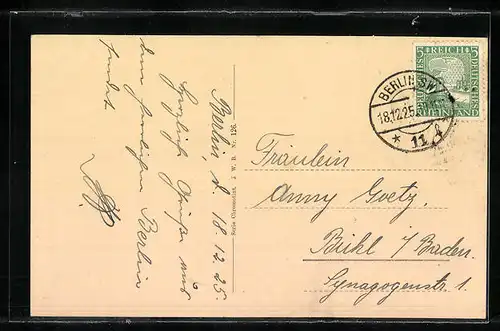 Berlin, d. 18.12.25.
Herzliche Grüße aus
dem herrlichen Berlin
sendet
Serie Chromolint. J. W. B. Nr. 126.
5 REICH 5
BERLIN SW
18.12.25.
* 11
Fräulein
Anny Goetz.
Bühl i/Baden.
Synagogenstr 1.